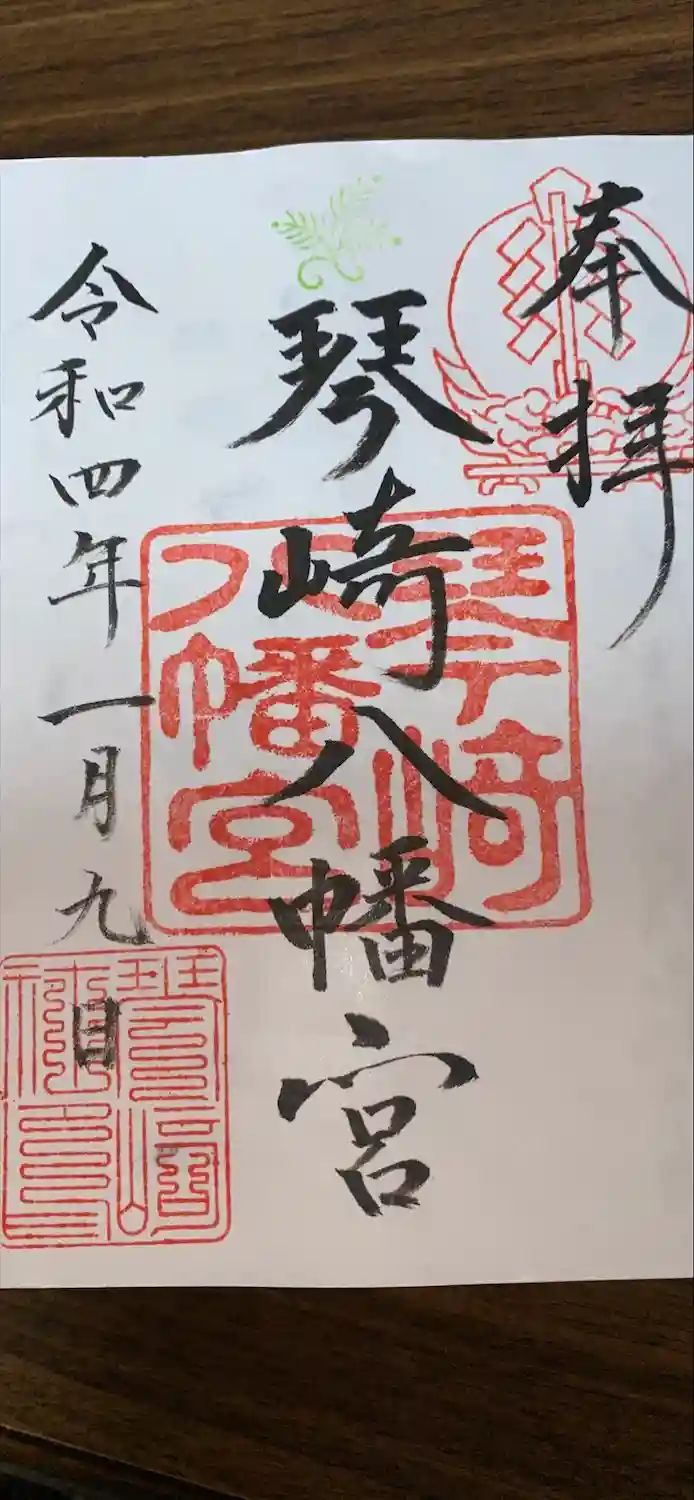 奉拝
琴崎八幡宮
令和四年一月九日
琴崎
八幡宮